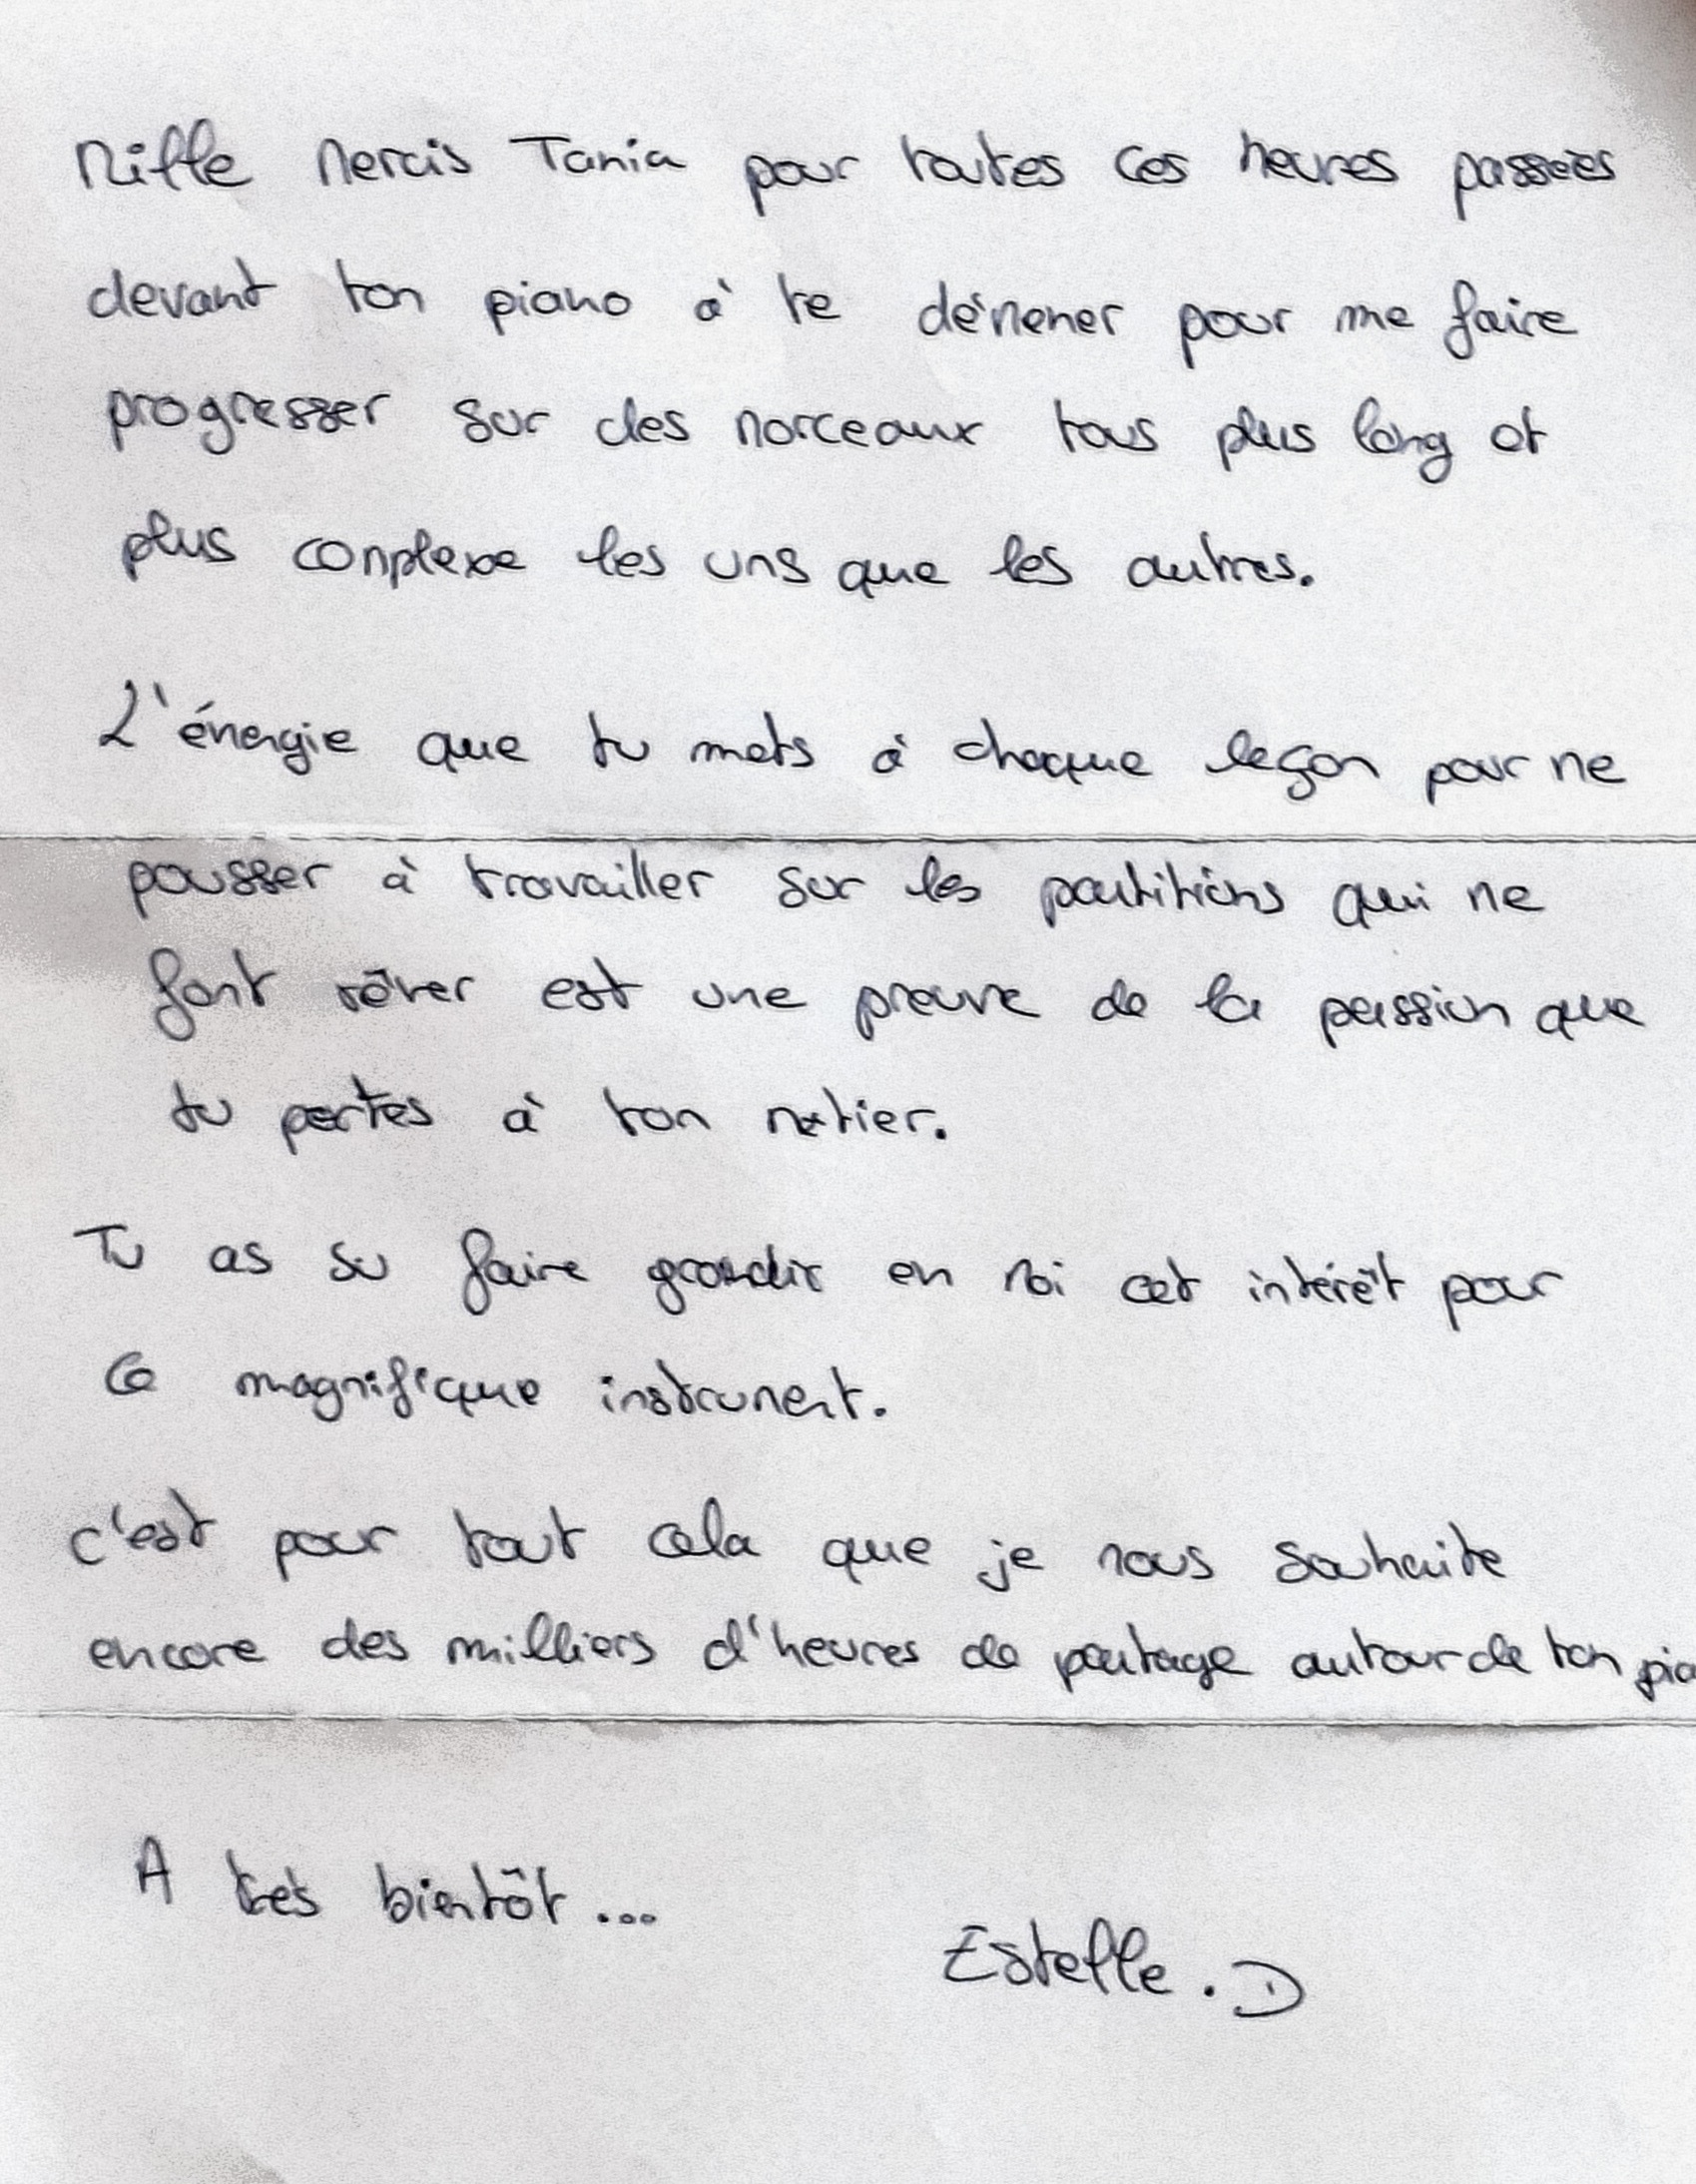 Mille Mercis Tania pour toutes ces heures passées
devant ton piano à te démener pour me faire
progresser sur des morceaux tous plus long et
plus complexe les uns que les autres.
L'énergie que tu mets à chaque leçon pour me
pousser à travailler sur les partitions qui me
font rêver est une preuve de la passion que
tu portes à ton métier.
Tu as su faire grandir en moi cet intérêt pour
ce magnifique instrument.
c'est pour tout cela que je nous souhaite
encore des milliers d'heures de partage autour de ton pia
A très bientôt...
Estelle.D